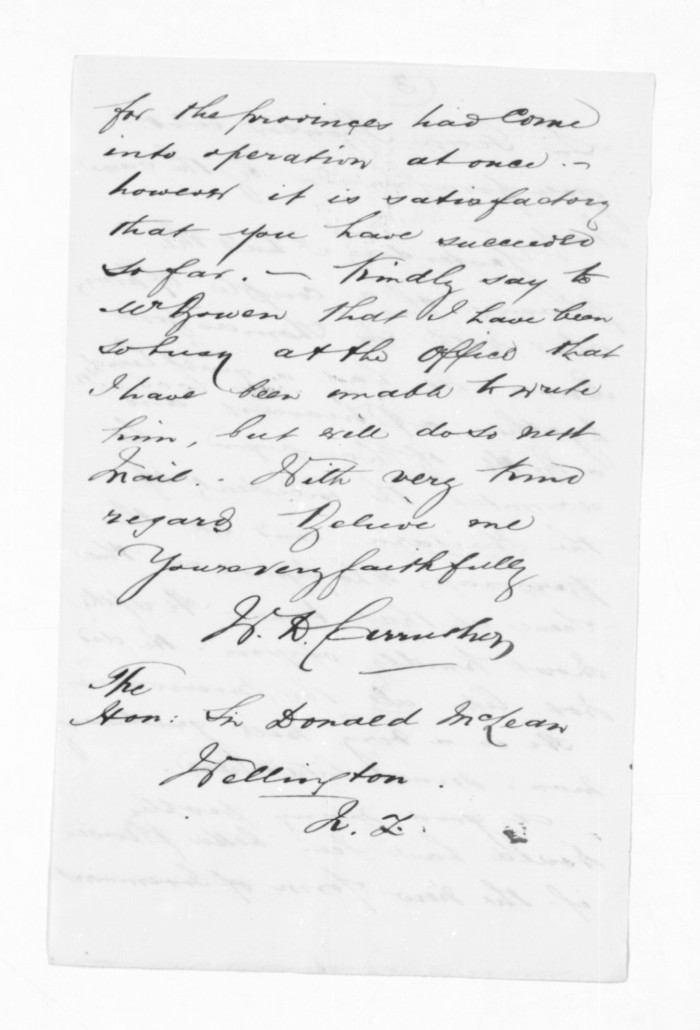 for the provinces had come
into operation at once. —
however it is satisfactory
that you have succeeded
so far. — Kindly say to
Mr Bowen that I have been
so busy at the office that
I have been unable to write
him, but will do so next
Mail. With very kind
regards Believe me
Yours very faithfully
W. D.
The
Hon: Sir Donald McLean
Wellington.
N. Z.